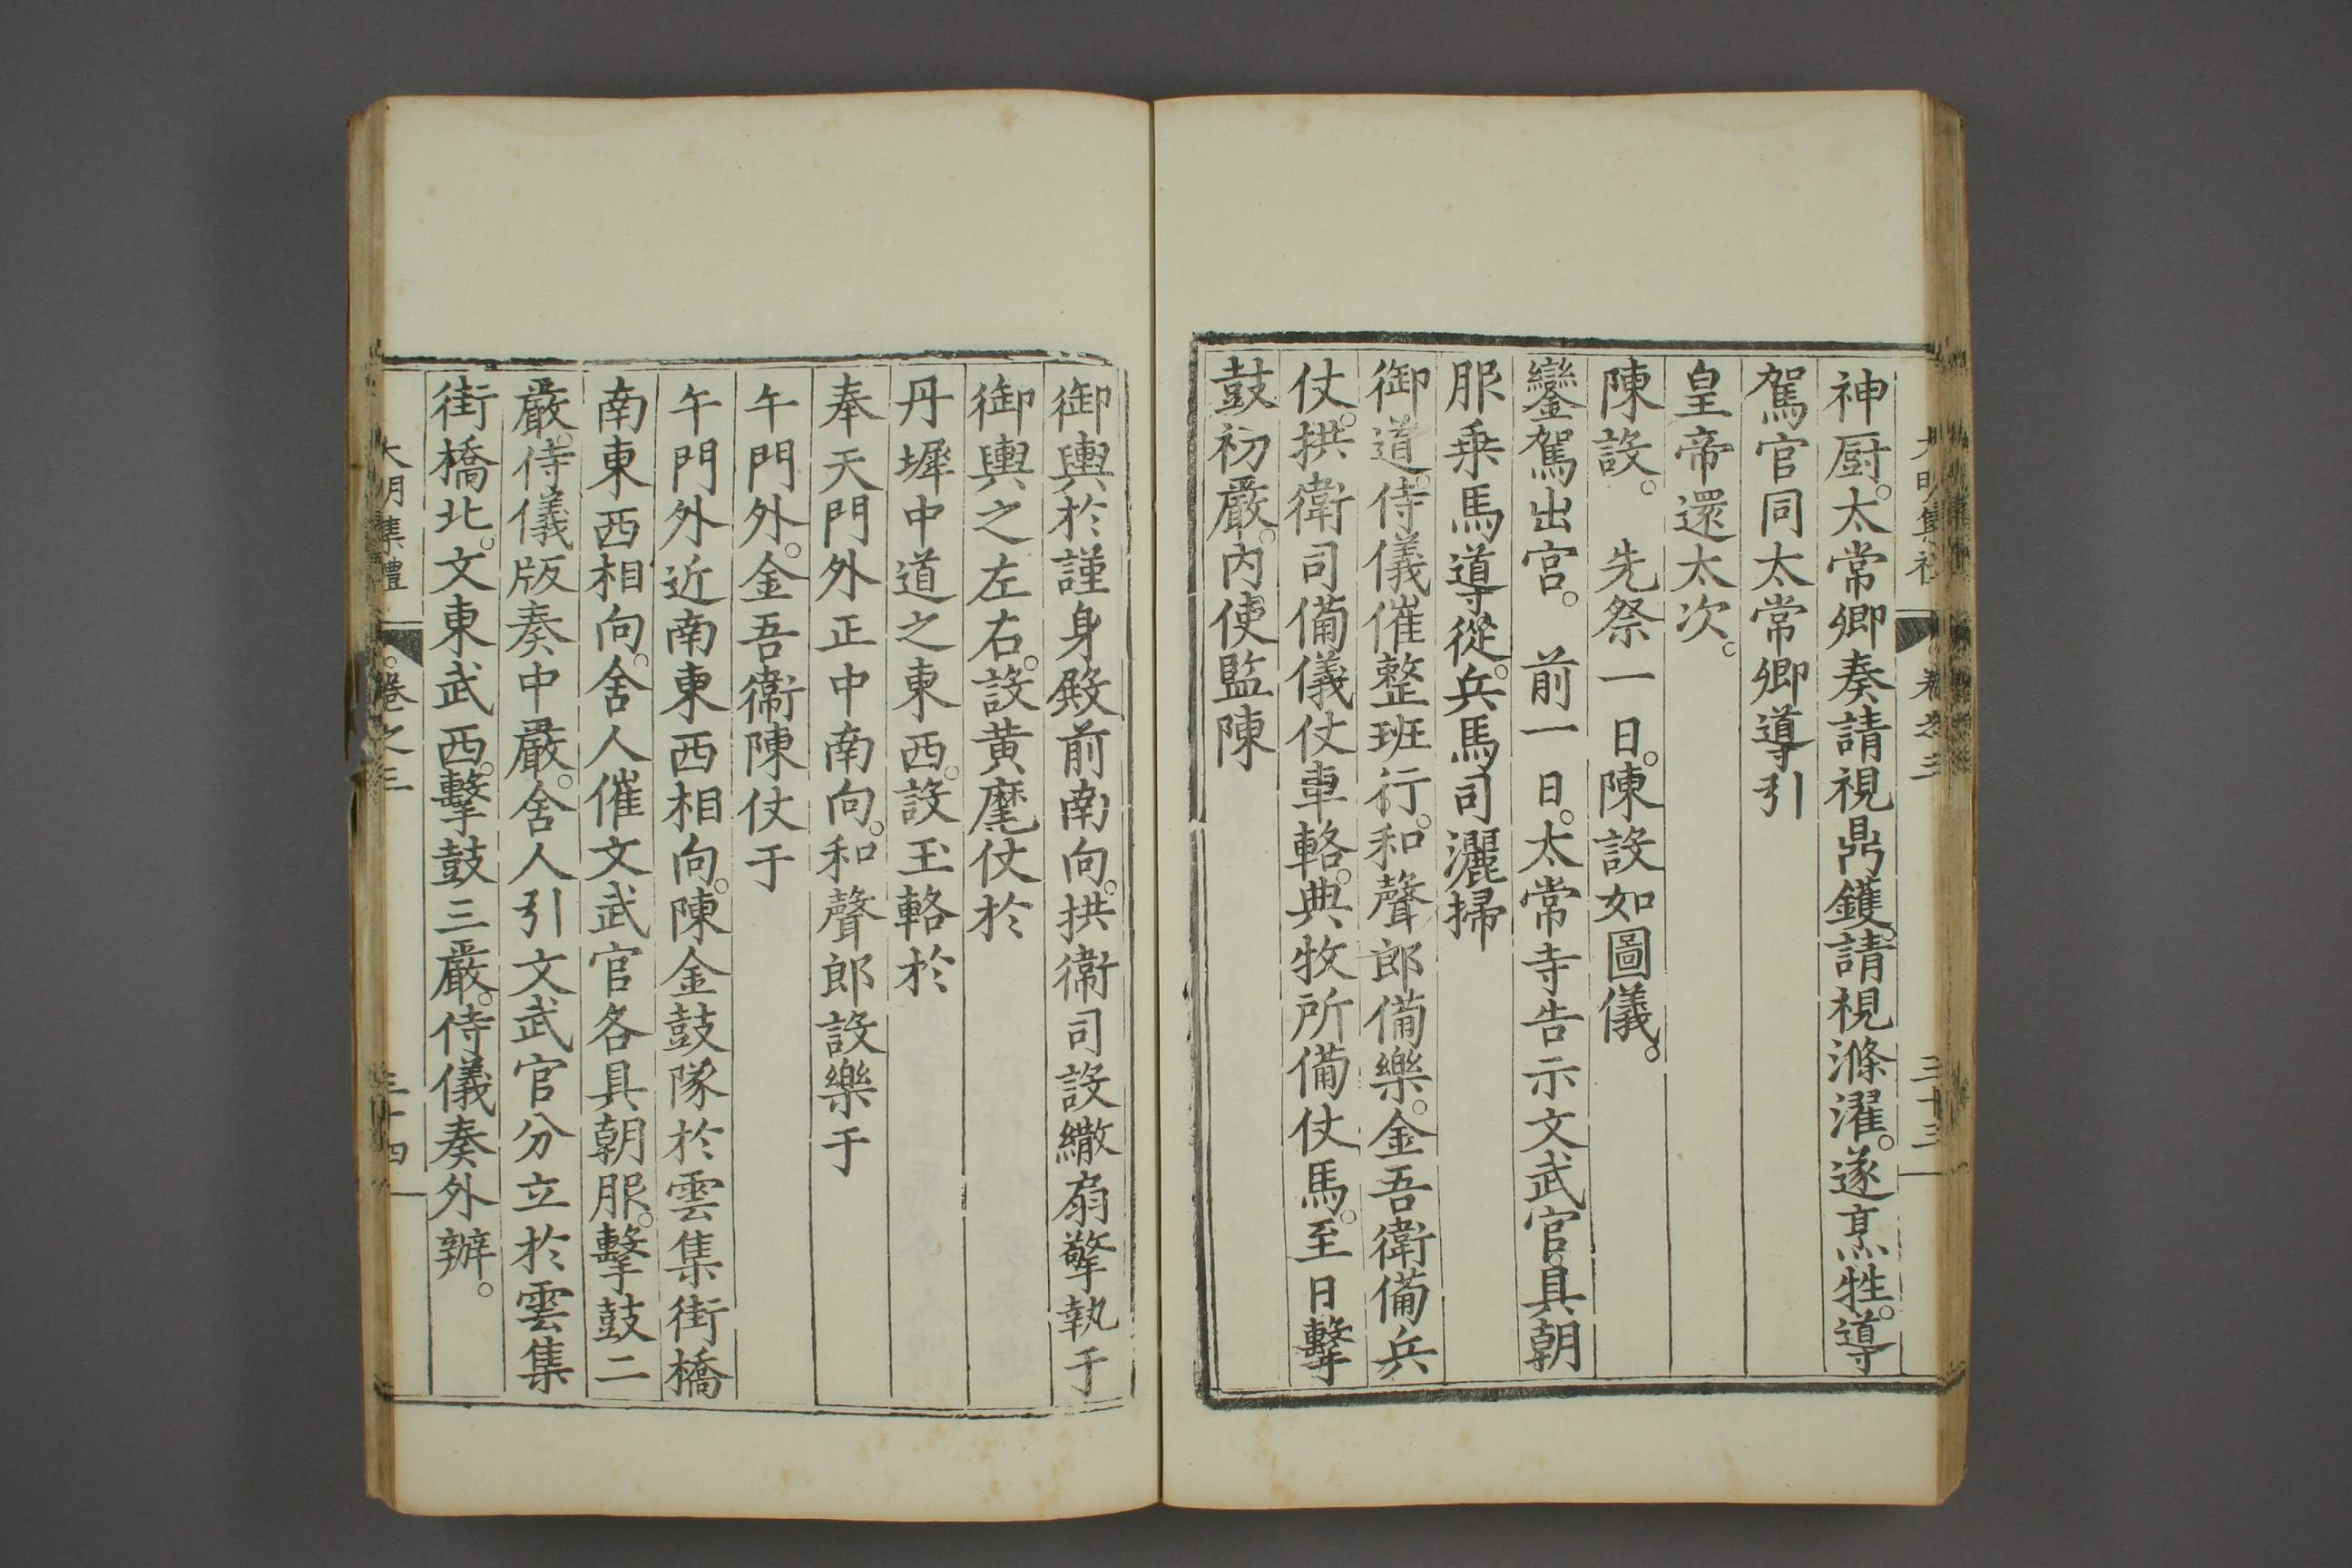 神厨。太常卿奏請視鼎鑊。請視滌濯。遂烹牲。導
駕官同太常卿導引
皇帝還太次。
陳設。　先祭一日。陳設如圖儀。
鑾駕出宮。　前一日。太常寺告示文武官。具朝
服乗馬導從。兵馬司灑掃
御道。侍儀催整班行。和聲郎備樂。金吾衛備兵
仗。拱衛司備儀仗車輅。典牧所備仗馬。至日擊
鼓初嚴。內使監陳
御輿於謹身殿前南向。拱衛司設繖扇擎執于
御輿之左右。設黄麾仗於
丹墀中道之東西。設玉輅於
奉天門外正中南向。和聲郎設樂于
午門外。金吾衛陳仗于
午門外近南東西相向。陳金鼓隊於雲集街橋
南東西相向。舍人催文武官各具朝服。擊鼓二
嚴。侍儀版奏中嚴。舍人引文武官分立於雲集
街橋北。文東武西。擊鼓三嚴。侍儀奏外辦。
大明集禮　卷之三　三十四